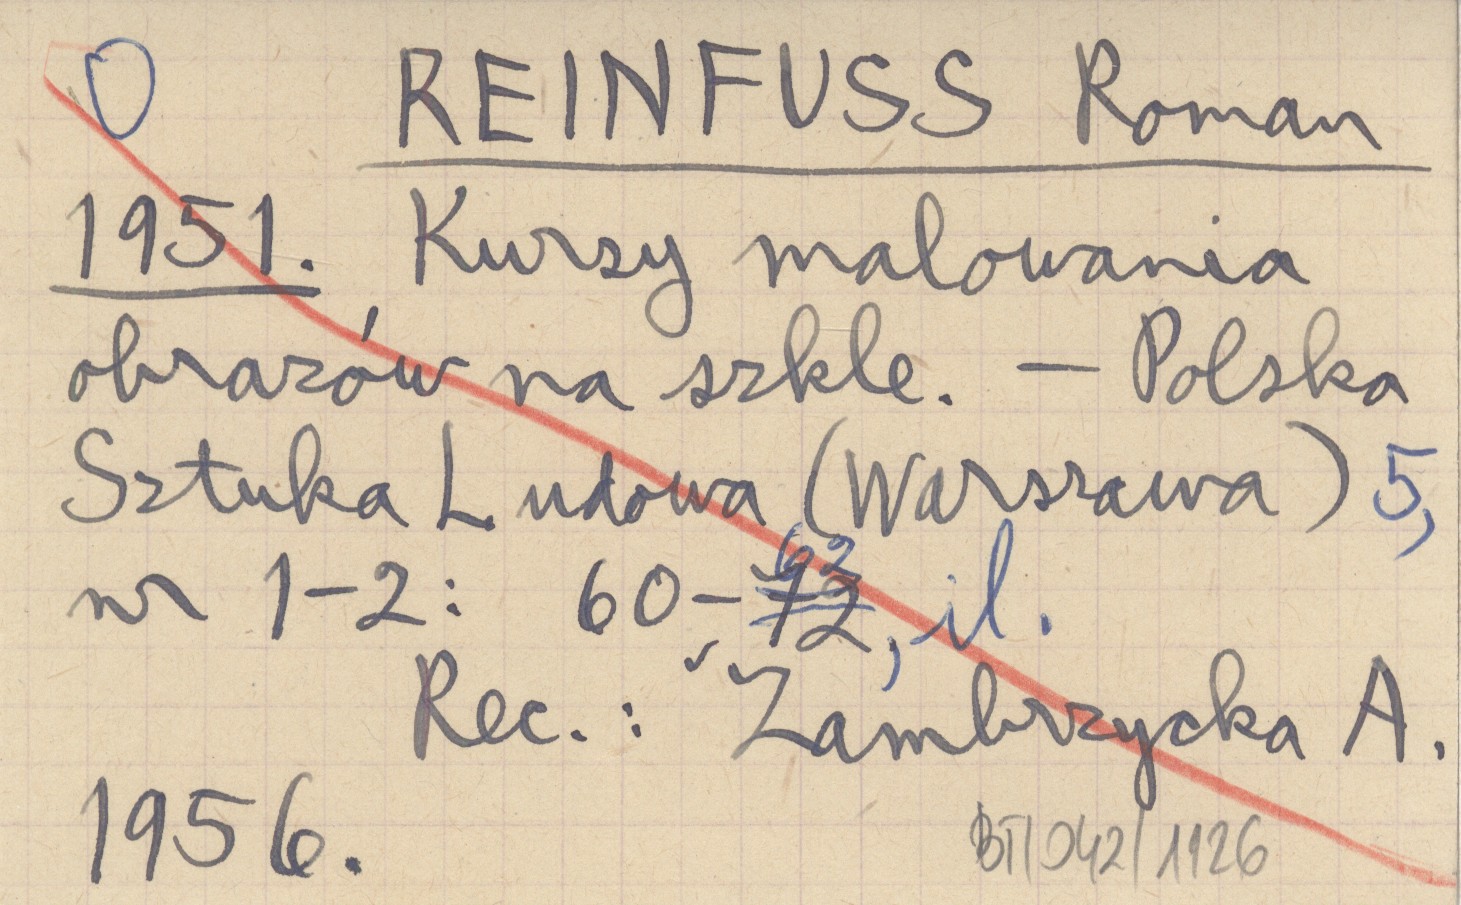 O REINFUSS Roman
1951. Kursy malowania
obrazów na szkle. – Polska
Sztuka Ludowa (Warszawa) 5,
nr 1–2: 60–62, il.
Rec.: Zambrzycka A.
1956.
BT/042/1126